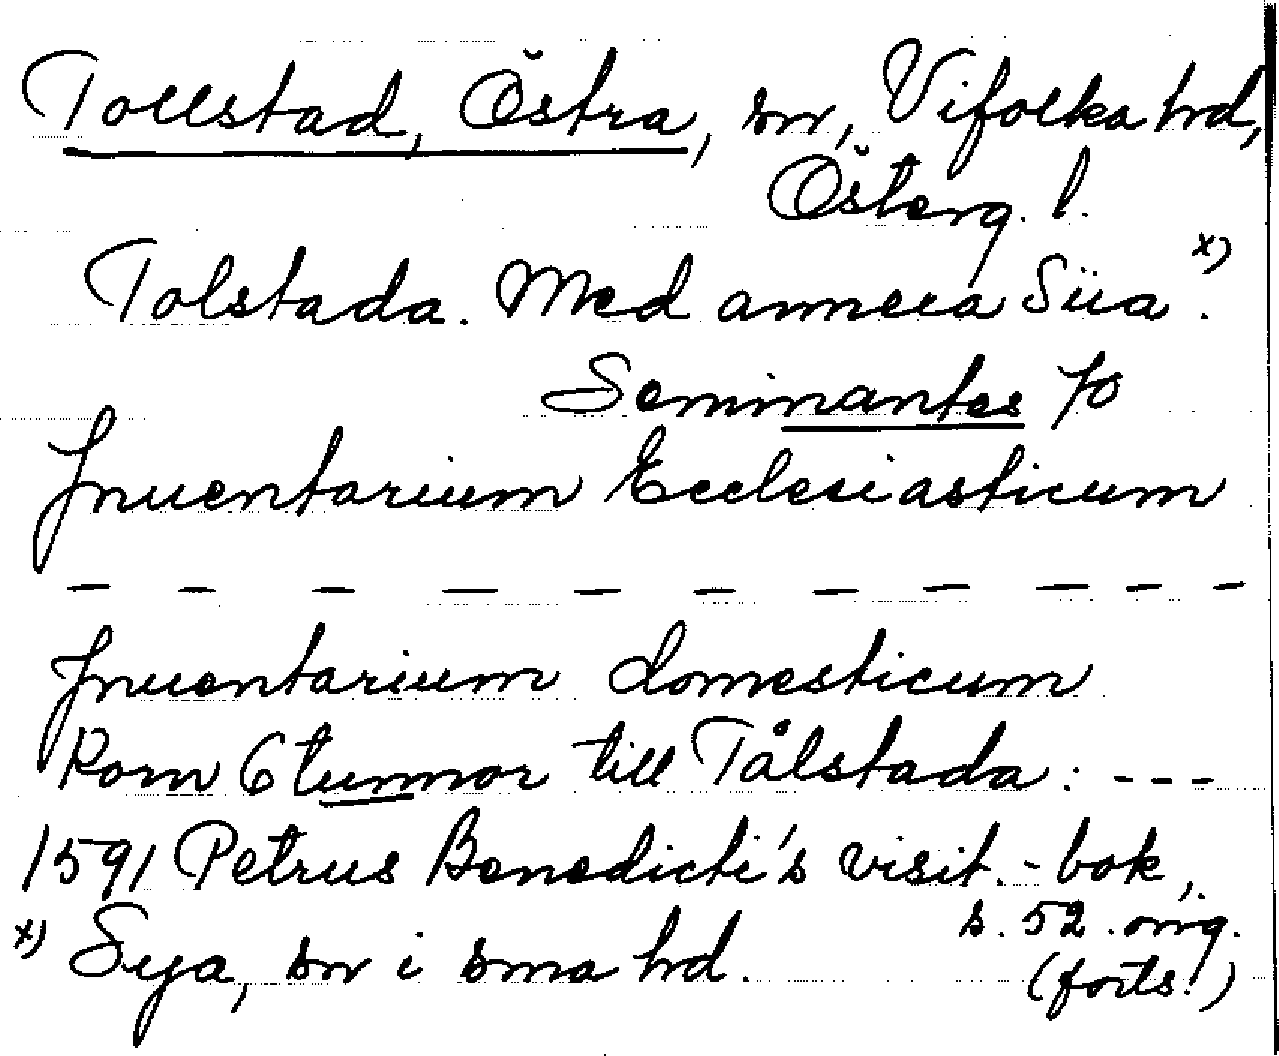 Tollstad, Östra, sn, Vifolka hd,
Österg. l.
Tolstada. Med annexa Siia x).
Seminantes 70
Inuentarium Ecclesiasticum
— — — — — — — — — — —
Inuentarium domesticum
Korn 6 tunnor till Tålstada: ---
1591 Petrus Benedicti's visit.-bok,
s. 52. orig.
x) Sya, sn i sma hd.
(forts.)